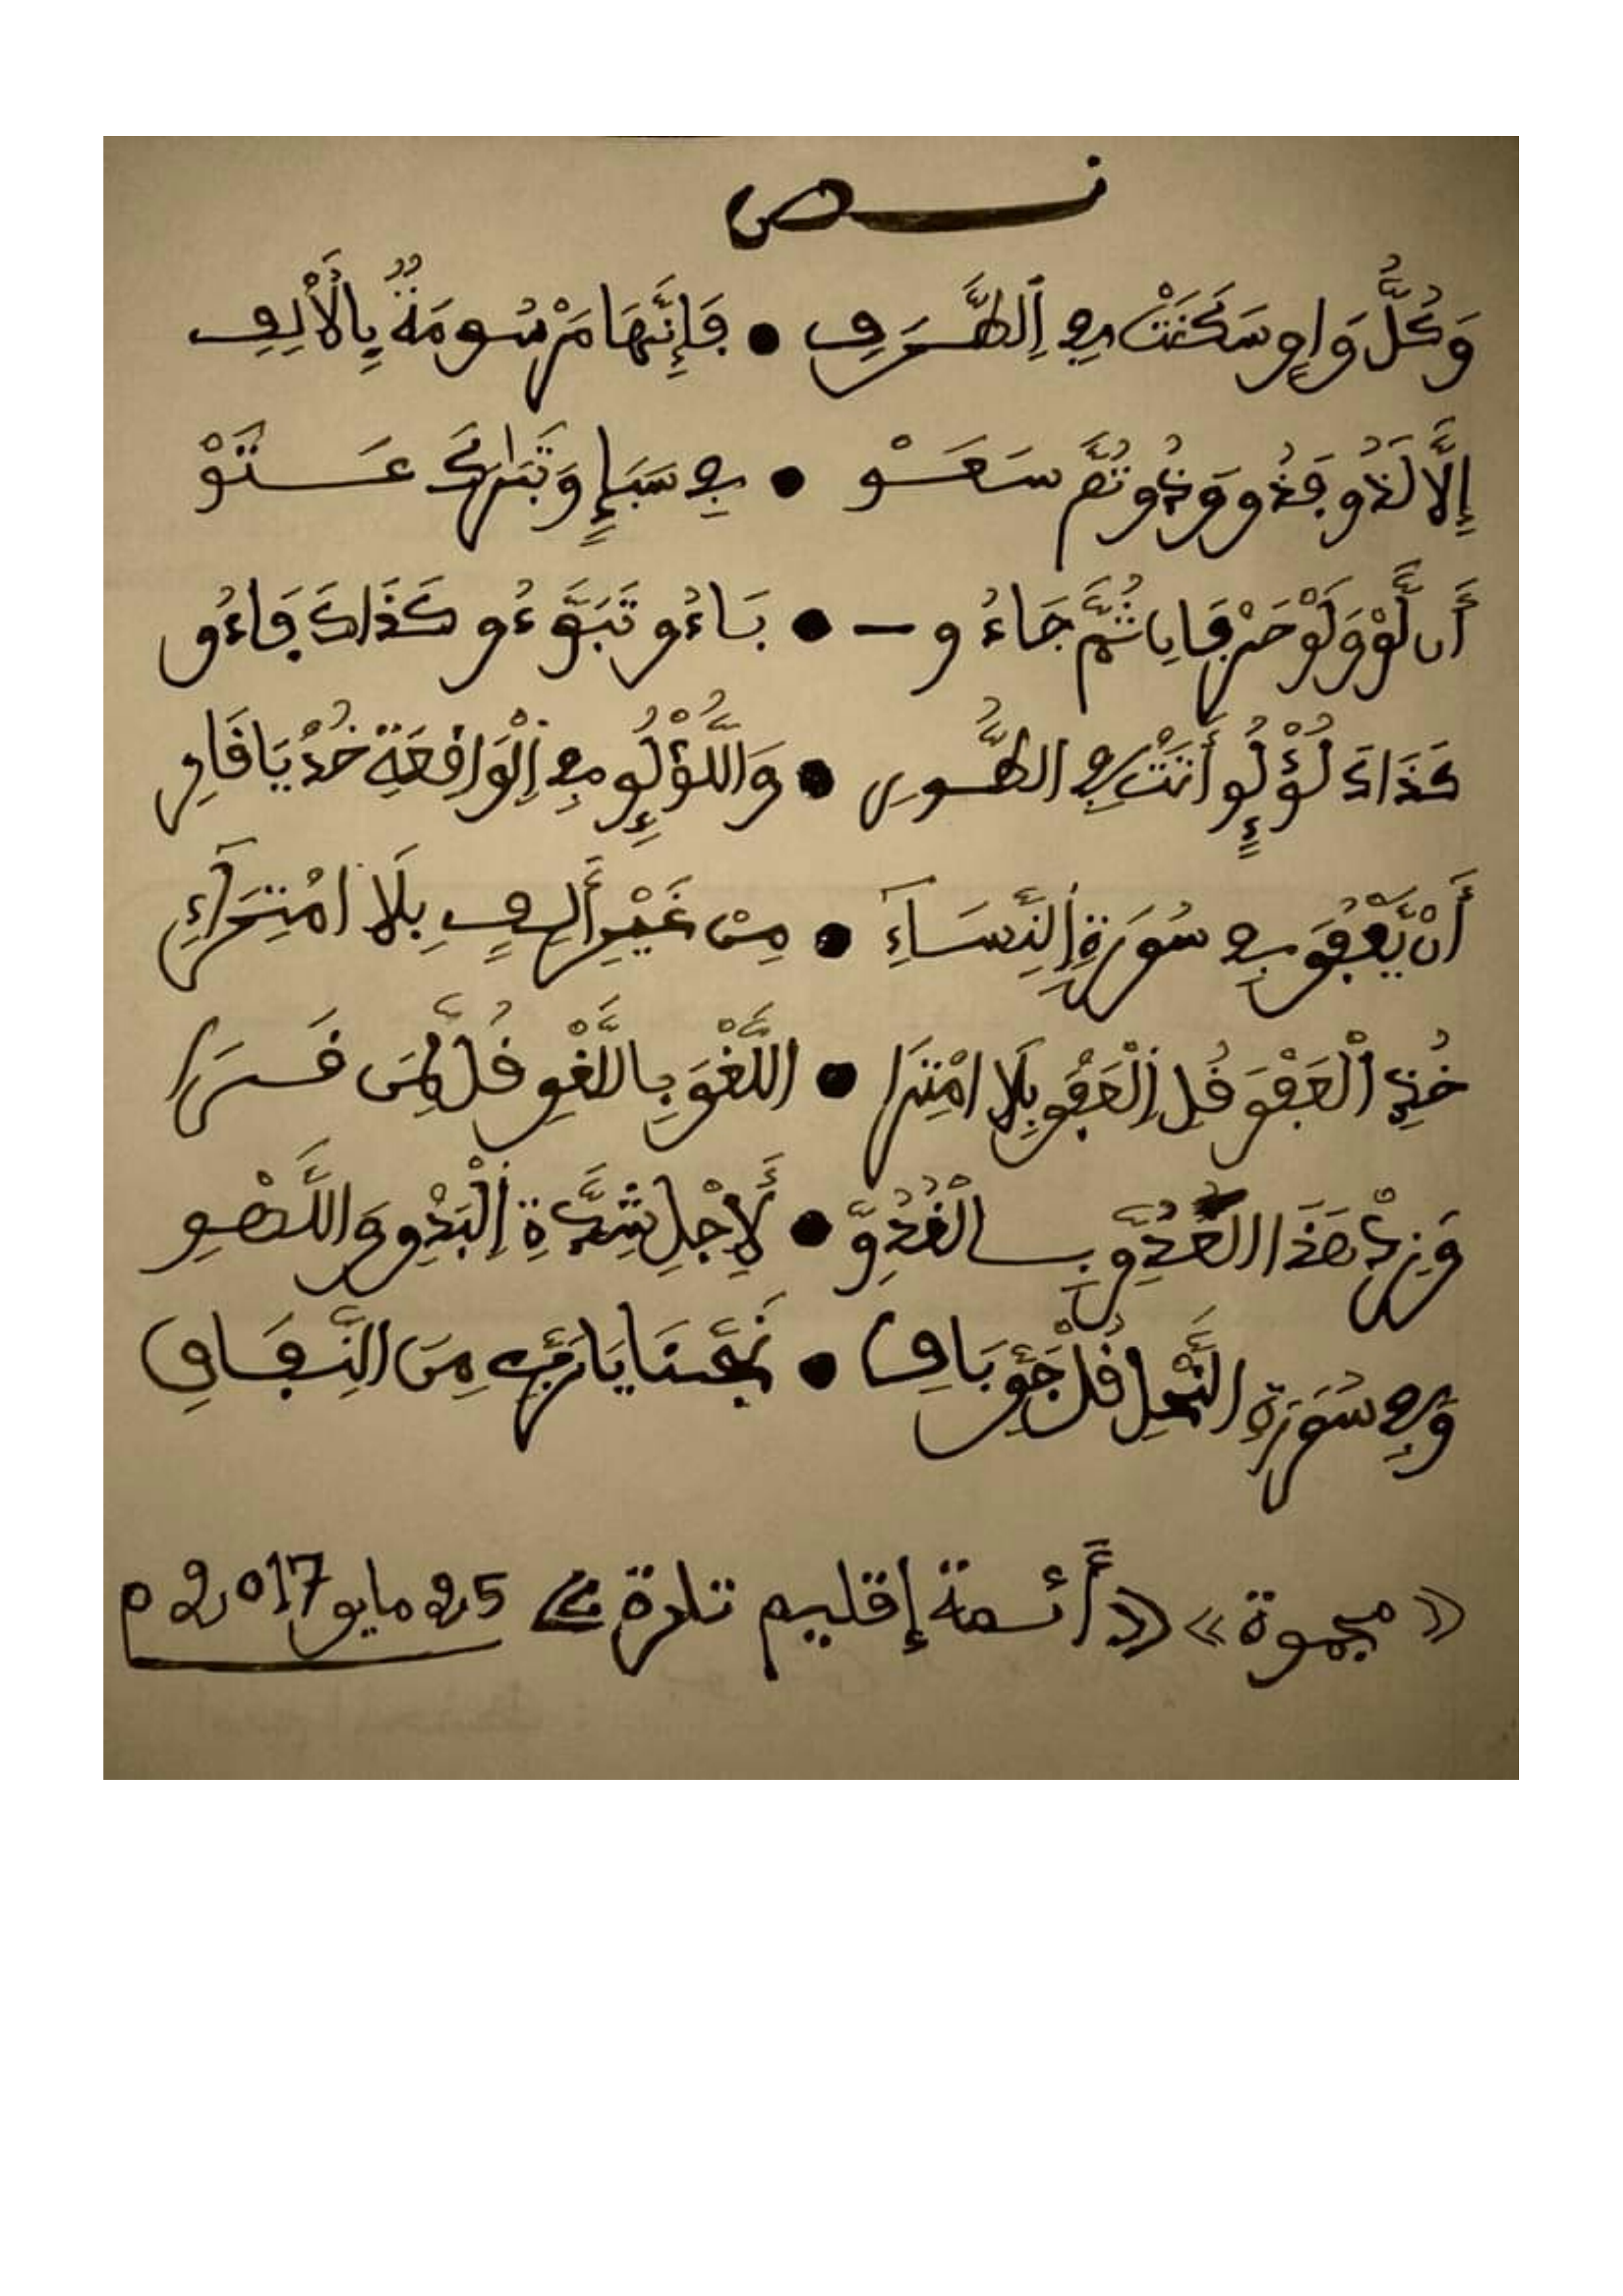 نـــص
وَكُلُّ وَاوٍ سَكَنَتْ فِي اِلطَّــرَفِ • فَإِنَّهَا مَرْسُومَةٌ بِالْأَلِفِ
إِلَّا لَذُو فَذُو وَذُو ثُمَّ سَعَــوْ • فِي سَبَإٍ وَتَبَارَكَ عَــتَوْ
أَن لَّوْ وَلَوْ حَرْفَانِ ثُمَّ جَاءُو – • بَـاءُو تَبَوَّءُو كَذَاكَ فَاءُو
كَذَاكَ لُؤْلُؤٍ أَتَتْ فِي الطُّــورِ • وَاللُّؤْلُؤِ فِي اِلْوَاقِعَةِ خُذْ يَا قَارِ
أَنْ يَّعْفُوَ فِي سُورَةِ اِلنِّسَـاءِ • مِنْ غَيْرِ أَلِـفٍ بِلَا امْتِرَاءِ
خُذِ اْلْعَفْوَ قُلِ اِلْعَفْوَ بِلَا امْتِرَا • اللَّغْوَ بِاللَّغْوِ قُلْ لِمَنْ قَــرَا
وَزِدْ هَذَا الْغُدُوِّ بِــالْغُدُوِّ • لِأَجْلِ شِدَّةِ اِلْبَدْوِ وَاللَّهْــوِ
وَفِي سُورَةِ النَّحْلِ قُلْ جَوِّ بَاقِ • نَجِّنَا يَا رَبِّي مِنَ النِّــفَــاقِ
«مجموة» «أئـمة إقليم تلدرة» 25 مايو 2017 م